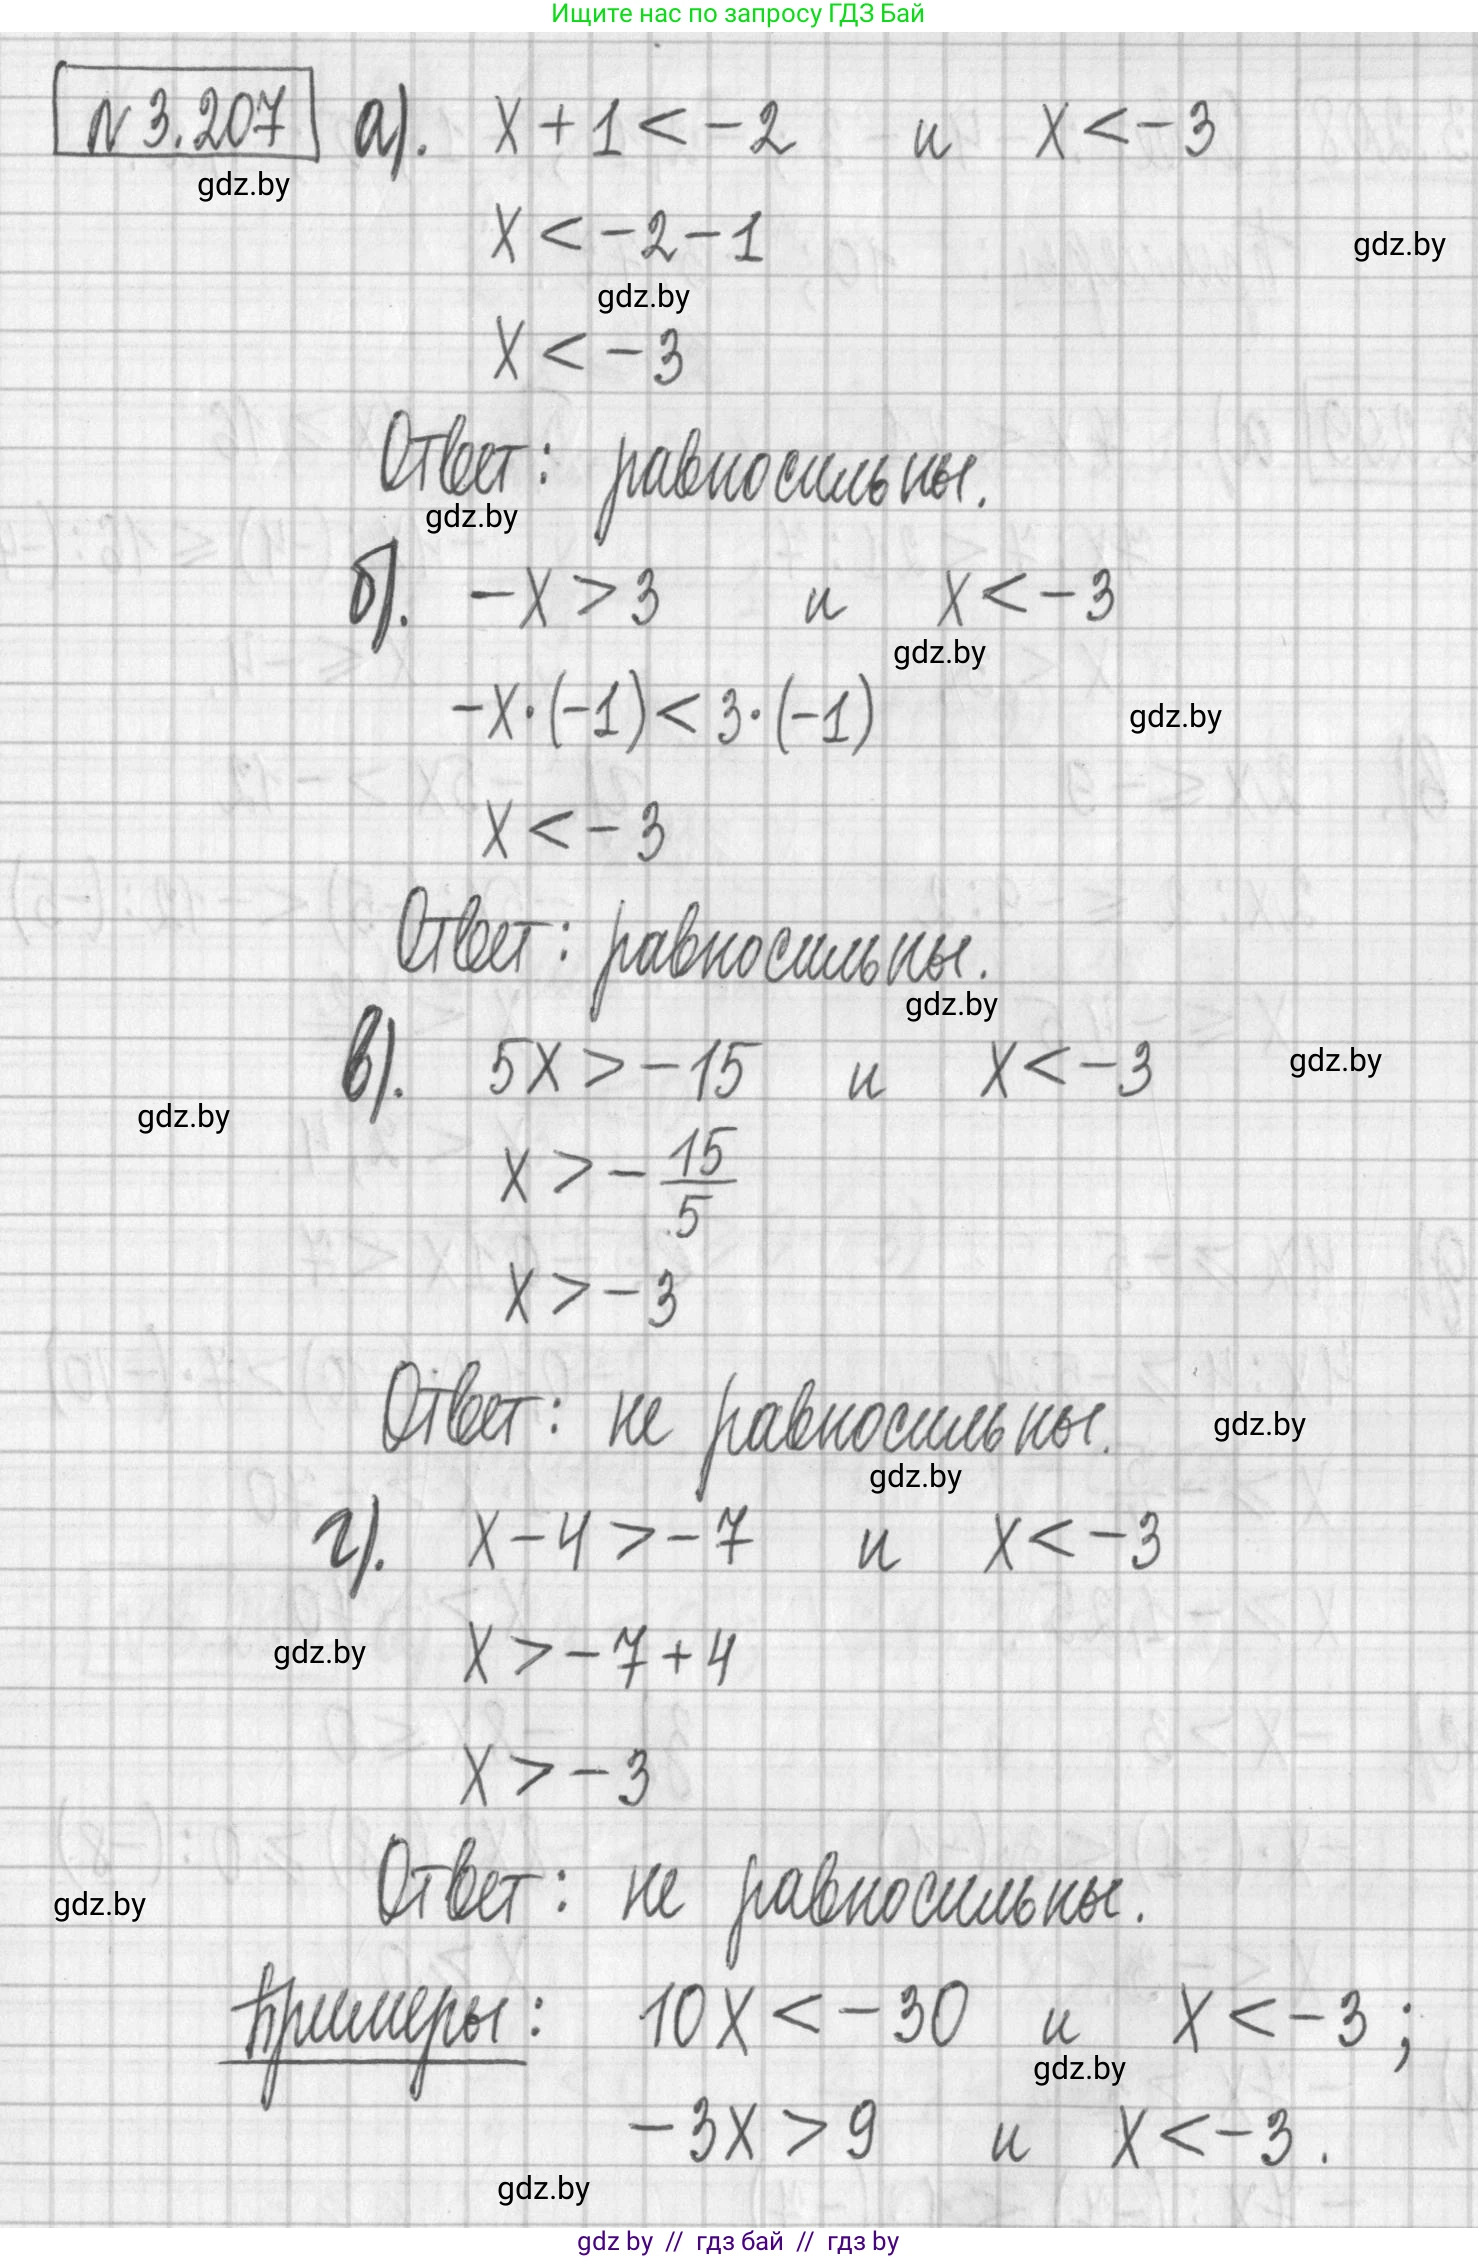 Ищите нас по запросу ГДЗ Бай
N 3.207 а). x + 1 < -2 и x < -3
gdz.by
x < -2 - 1
gdz.by
gdz.by
x < -3
Ответ: равносильны.
gdz.by
б). -x > 3 и x < -3
gdz.by
-x·(-1) < 3·(-1)
gdz.by
x < -3
Ответ: равносильны.
gdz.by
в). 5x > -15 и x < -3
gdz.by
gdz.by
x > - 15/5
x > -3
Ответ: не равносильны.
gdz.by
gdz.by
г). x - 4 > -7 и x < -3
x > -7 + 4
gdz.by
x > -3
Ответ: не равносильны.
gdz.by
Примеры: 10x < -30 и x < -3;
gdz.by
-3x > 9 и x < -3.
gdz.by
gdz by // гдз бай // гдз by